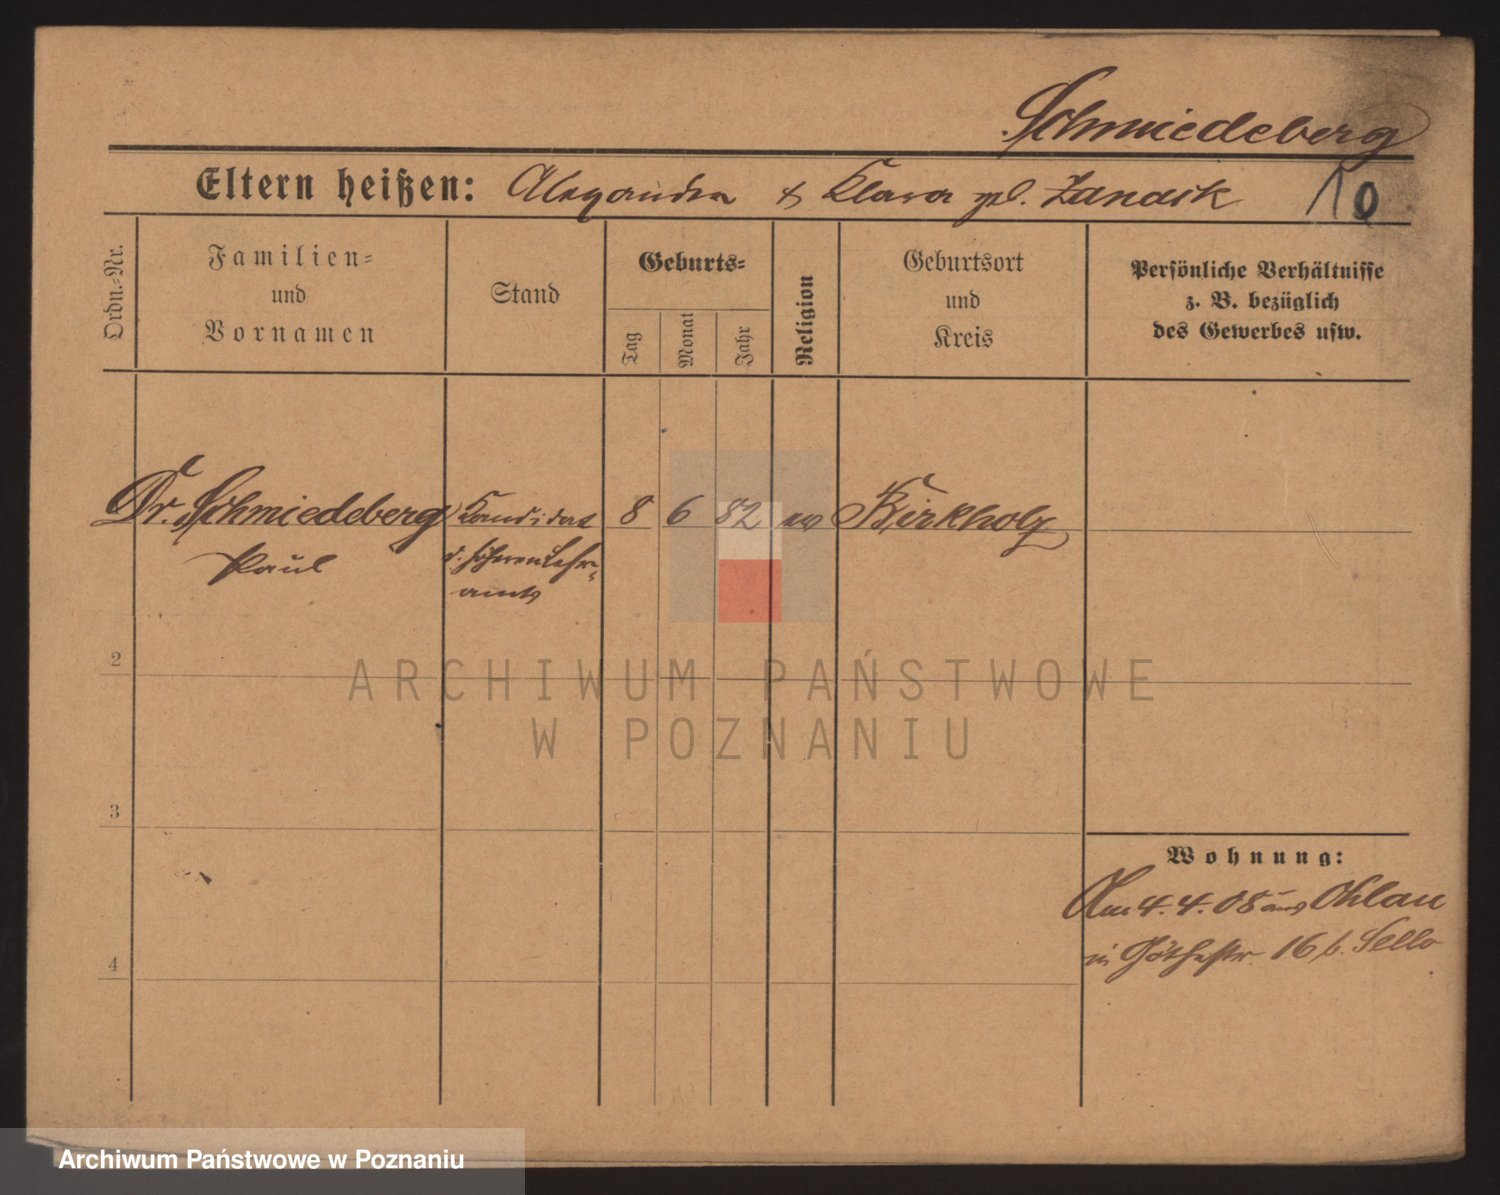 Schmiedeberg
Eltern heißen: Alexander & Klara geb. Zandik
10
Ordn.-Nr.
Familien-
und
Vornamen
Stand
Geburts-
Tag
Monat
Jahr
Religion
Geburtsort
und
Kreis
Persönliche Verhältnisse
z. B. bezüglich
des Gewerbes usw.
Dr. Schmiedeberg
Paul
Kandidat
d. höheren Lehr-
amts
8
6
82
ev
Birkholz
2
3
4
Wohnung:
Am 4.4.08 aus Ohlau
in Göthestr. 16 b. Sello
ARCHIWUM PAŃSTWOWE
W POZNANIU
Archiwum Państwowe w Poznaniu